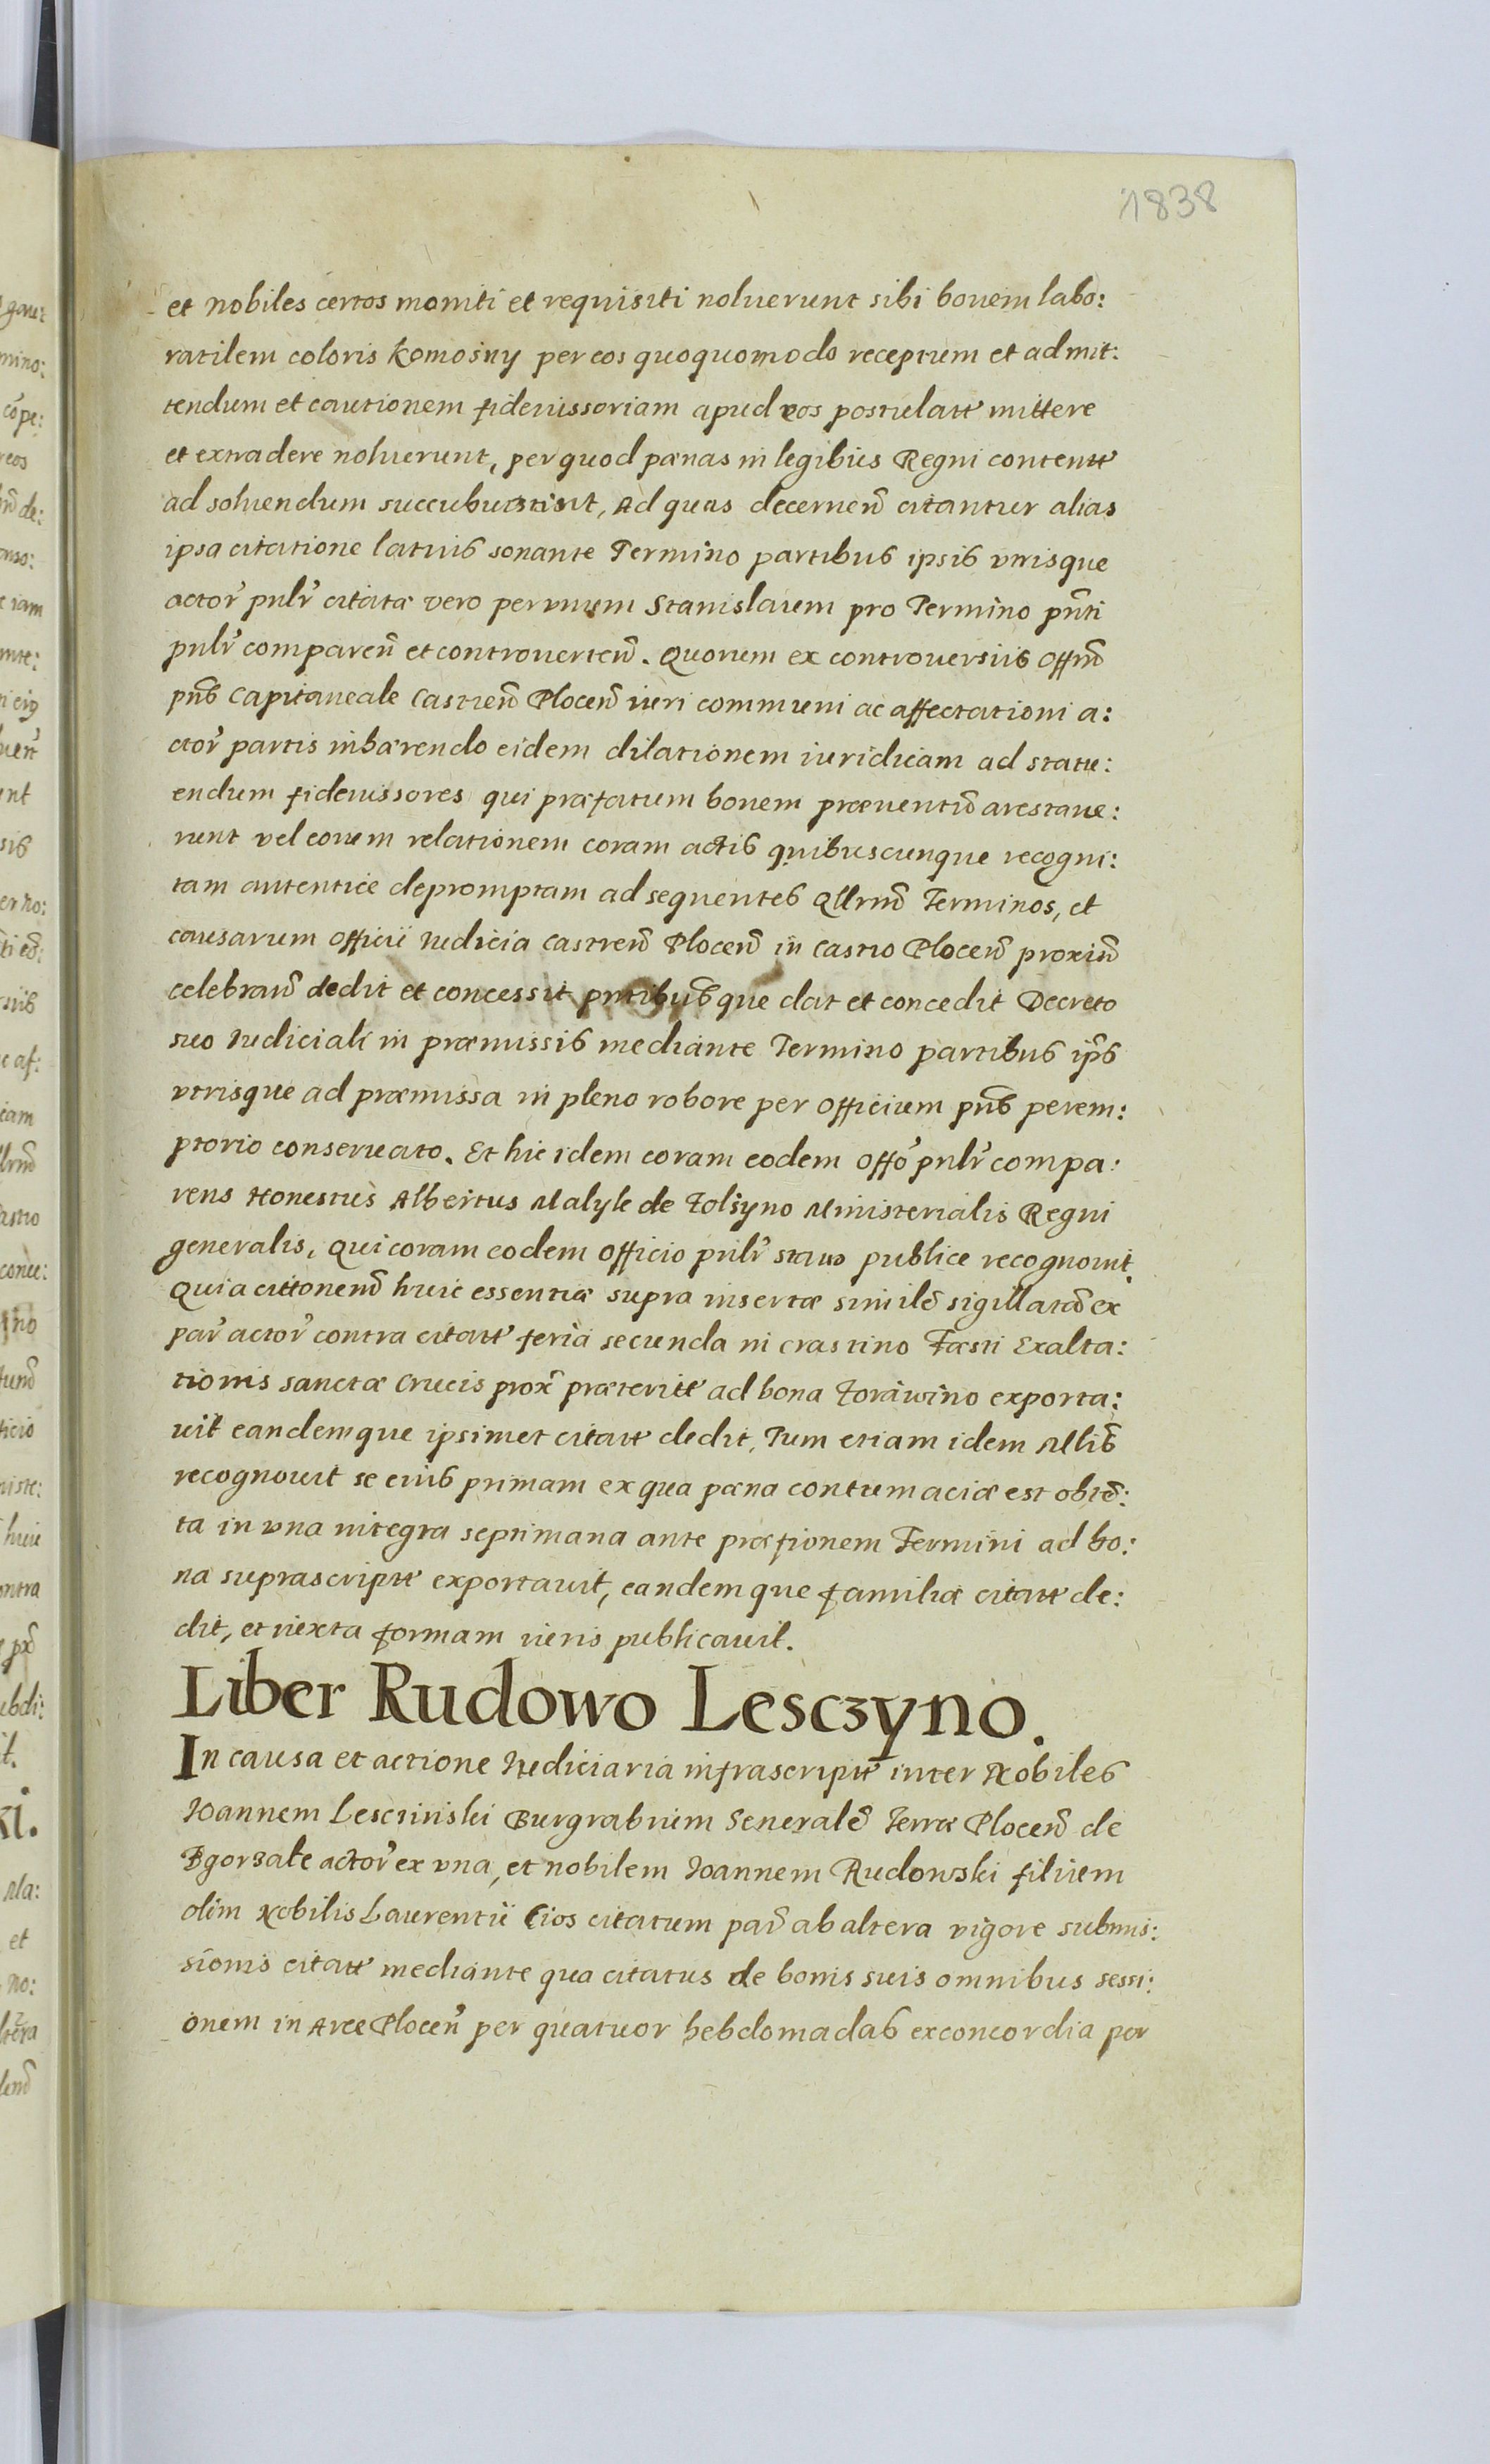 1838
et nobiles certos moniti et requisiti noluerunt sibi bouem labo:
ratilem coloris komośny per eos quoquomodo receptum et admit:
tendum et cautionem fideiussoriam apud eos postulatt mittere
et extradere noluerunt, per quod pænas in legibus Regni contentt
ad soluendum succubuerunt, Ad quas decernen̄ citantur alias
ipsa citatione latius sonante Termino partibus ipsis vtrisque
actor̄ pnlr̄ citatæ vero per vnum Stanislaum pro Termino pn̄ti
pnlr̄ comparen̄ et controuerten̄. Quorum ex controuersiis Offm̄
pn̄s Capitaneale Castren̄ Plocen̄ iuri communi ac affectationi a:
ctor̄ partis inhærendo eidem dilationem iuridicam ad statu:
endum fideiussores qui præfatum bouem præuentiū arestaue:
runt vel eorum relationem coram actis quibuscunque recogni:
tam autentice depromptam ad sequentes Qllrm̄ Terminos, et
causarum Officii Iudicia Castren̄ Plocen̄ in Castro Plocen̄ proxim̄
celebran̄ dedit et concessit pn̄tibusque dat et concedit Decreto
suo Iudiciali in præmissis mediante Termino partibus ip̄s
vtrisque ad præmissa in pleno robore per Officium pn̄s perem:
ptorio conseruato. Et hic idem coram eodem Offō pnlr̄ compa:
rens Honestus Albertus Malyk de Zolsyno Ministerialis Regni
generalis, Qui coram eodem Officio pnlr̄ stans publice recognouit.
Quia citionem̄ huic essentiæ supra insertæ similē sigillatā ex
par̄ actor̄ contra citatt feria secunda in crastino Fæsti Exalta:
tionis sanctæ Crucis prox̄ præteritt ad bona Zorawino exporta:
uit eandemque ipsimet citatt dedit, Tum etiam idem Mlis̄
recognouit se eius primam ex qua pæna contumaciæ est obtē:
ta in vna integra septimana ante præfionem Termini ad bo:
na suprascriptt exportauit, eandemque familiæ citatt de:
dit, et iuxta formam iuris publicauit.
Liber Rudowo Lesczyno.
In causa et actione Iudiciaria infrascriptt inter Nobiles
Ioannem Lescinski Burgrabium Generalē Terræ Plocen̄ de
Bgorzale actor̄ ex vna, et nobilem Ioannem Rudowski filium
olim Nobilis Laurentii Cios citatum par̄ ab altera vigore submis:
sionis citatt mediante qua citatus de bonis suis omnibus sessi:
onem in Arce Plocen̄ per quatuor hebdomadas exconcordia per